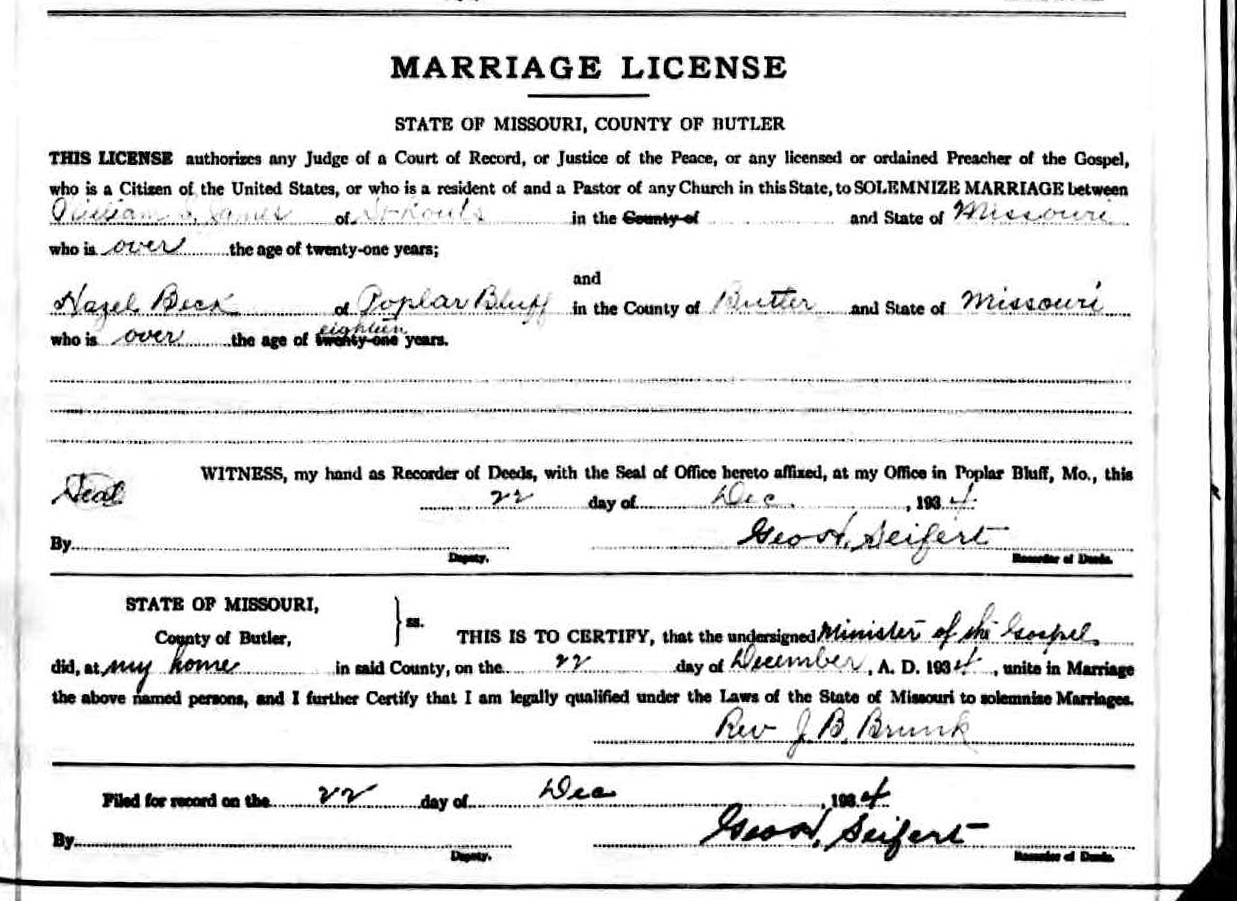 MARRIAGE LICENSE
STATE OF MISSOURI, COUNTY OF BUTLER
THIS LICENSE authorizes any Judge of a Court of Record, or Justice of the Peace, or any licensed or ordained Preacher of the Gospel,
who is a Citizen of the United States, or who is a resident of and a Pastor of any Church in this State, to SOLEMNIZE MARRIAGE between
William James of St Louis in the County of and State of Missouri
who is over the age of twenty-one years;
and
Hazel Beck of Poplar Bluff in the County of Butler and State of Missouri
eighteen
who is over the age of twenty-one years.
WITNESS, my hand as Recorder of Deeds, with the Seal of Office hereto affixed, at my Office in Poplar Bluff, Mo., this
Seal
22 day of Dec. , 1934
By Geo H. Seifert
Deputy. Recorder of Deeds.
STATE OF MISSOURI,
County of Butler, } ss. THIS IS TO CERTIFY, that the undersigned Minister of the Gospel
did, at my home in said County, on the 22 day of December, A. D. 1934, unite in Marriage
the above named persons, and I further Certify that I am legally qualified under the Laws of the State of Missouri to solemnize Marriages.
Rev J. B. Brunk
Filed for record on the 22 day of Dec , 1934
By Geo H. Seifert
Deputy. Recorder of Deeds.